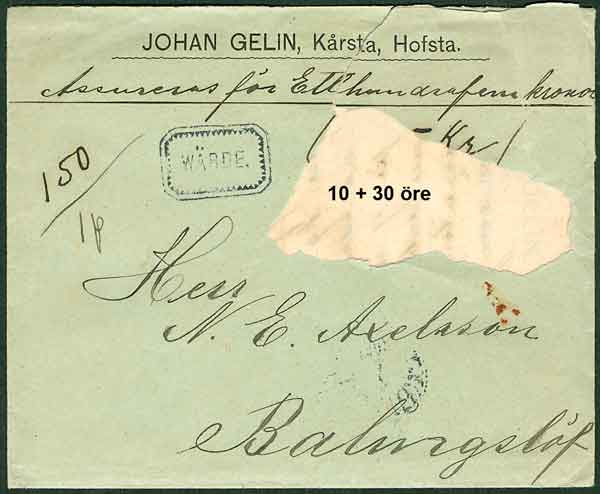 JOHAN GELIN, Kårsta, Hofsta.
Assureras för Ett hundrafem kronor
Kr
150
WÄRDE.
10 + 30 öre
Herr
N. E. Axelsson
Balingslöf